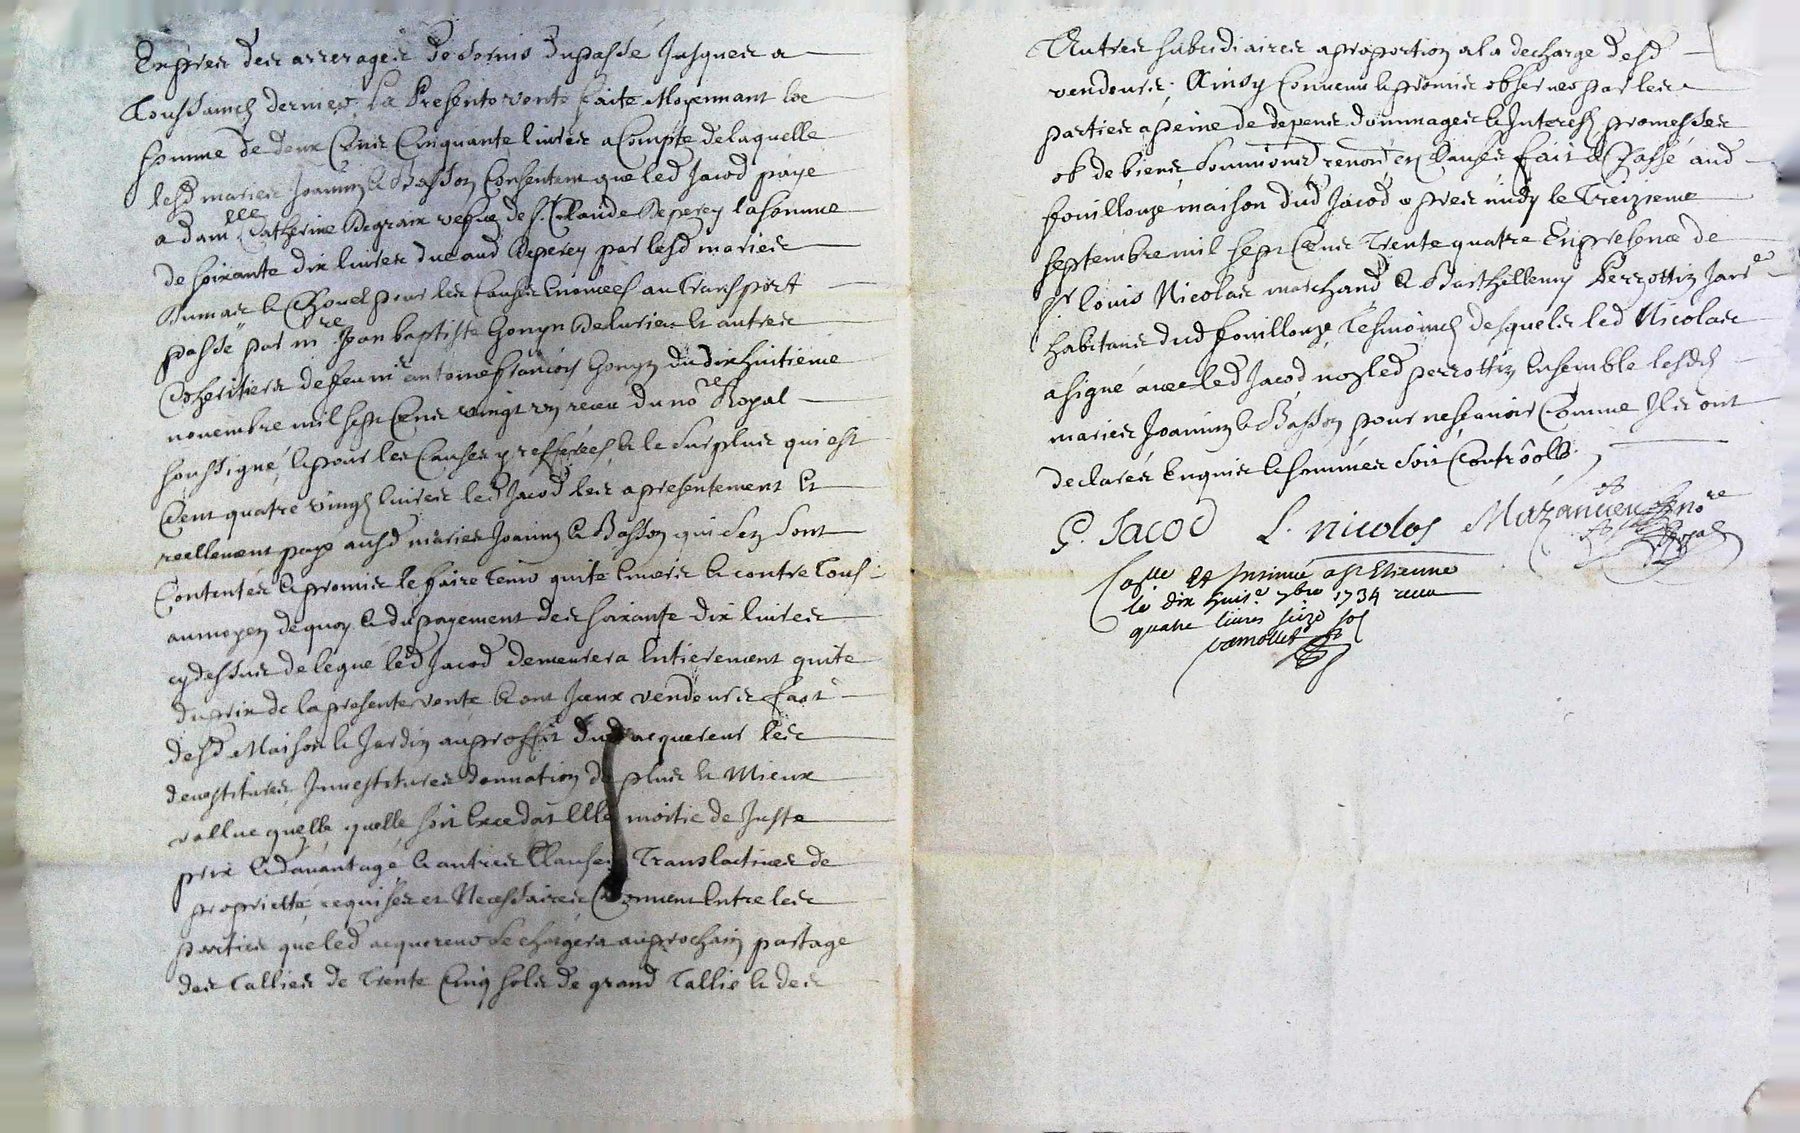 Exprès des arrerages de servis du passé Jusques a
Toussainctz dernier, La Presente vente faite Moyennant la
somme de deux Cens Cinquante livres a Compte de laquelle
lesd mariés Joannin & Basson Consentent que led Jacod paye
a dam.lle Catherine Degraix vefve de S.r Claude Deperey la somme
de soixante dix livres due aud Deperey par lesd mariés
Dumas & Chovel pour les Causes Enoncées au Transport
passé par m.re Jean baptiste Gonyn Delurieu Et autres
Coheritiers de feu m.re antoine françois Gonyn du dix huitieme
novembre mil sept Cens vingt un receu du no.re Royal
soussigné, & pour les Causes y refferées & le surplus qui est
Cent quatre vingtz livres led Jacod les a presentement Et
reellement payé ausd mariés Joannin & Basson qui s'en sont
Contentés & promis le faire tenir quite Envers & contre tous
au moyen de quoy & du payement des soixante dix livres
cy dessus delegué led Jacod demeurera Entierement quite
du prix de la presente vente & ont Iceux vendeurs fait
desd Maison & Jardin au proffit dud acquereur les
devestitures Investitures donnation de plus & Mieux
vallue quelle quelle soit Excedat Elle moitié de Juste
prix & davantage & autres Clauses Translatives de
proprietté requises et Necessaires Convenu Entre les
parties que led acquereur se chargera au prochain partage
des Tallies de Trente Cinq sols de grand Tallie & des
Autres subsidiaires a proportion a la decharge desd
vendeurs; Ainsy Convenu & promis observer par les
parties a peine de depens dommages & Interestz promesses
ob de biens soumions renon.d en Causes fait & Passé aud
fouillouze maison dud Jacod apres midy le Treizieme
septembre mil sept Cens Trente quatre En presence de
S.r louis Nicolas marchand & Barthellemy Perrottin Jard.r
habitans dud fouillouze, Tesmoinctz desquels led Nicolas
a signé avec led Jacod non led perrottin Ensemble lesdtz
mariés Joannin & Basson pour ne scavoir Comme Ils ont
declarés Enquis & sommés soit Contrôolle.
P. Jacod L. nicolas Mazancieu no.re Royal
Co.lle Et Insinué a S.t Etienne
le dix huit.e 7bre 1734 receu
quatre livres seize sol